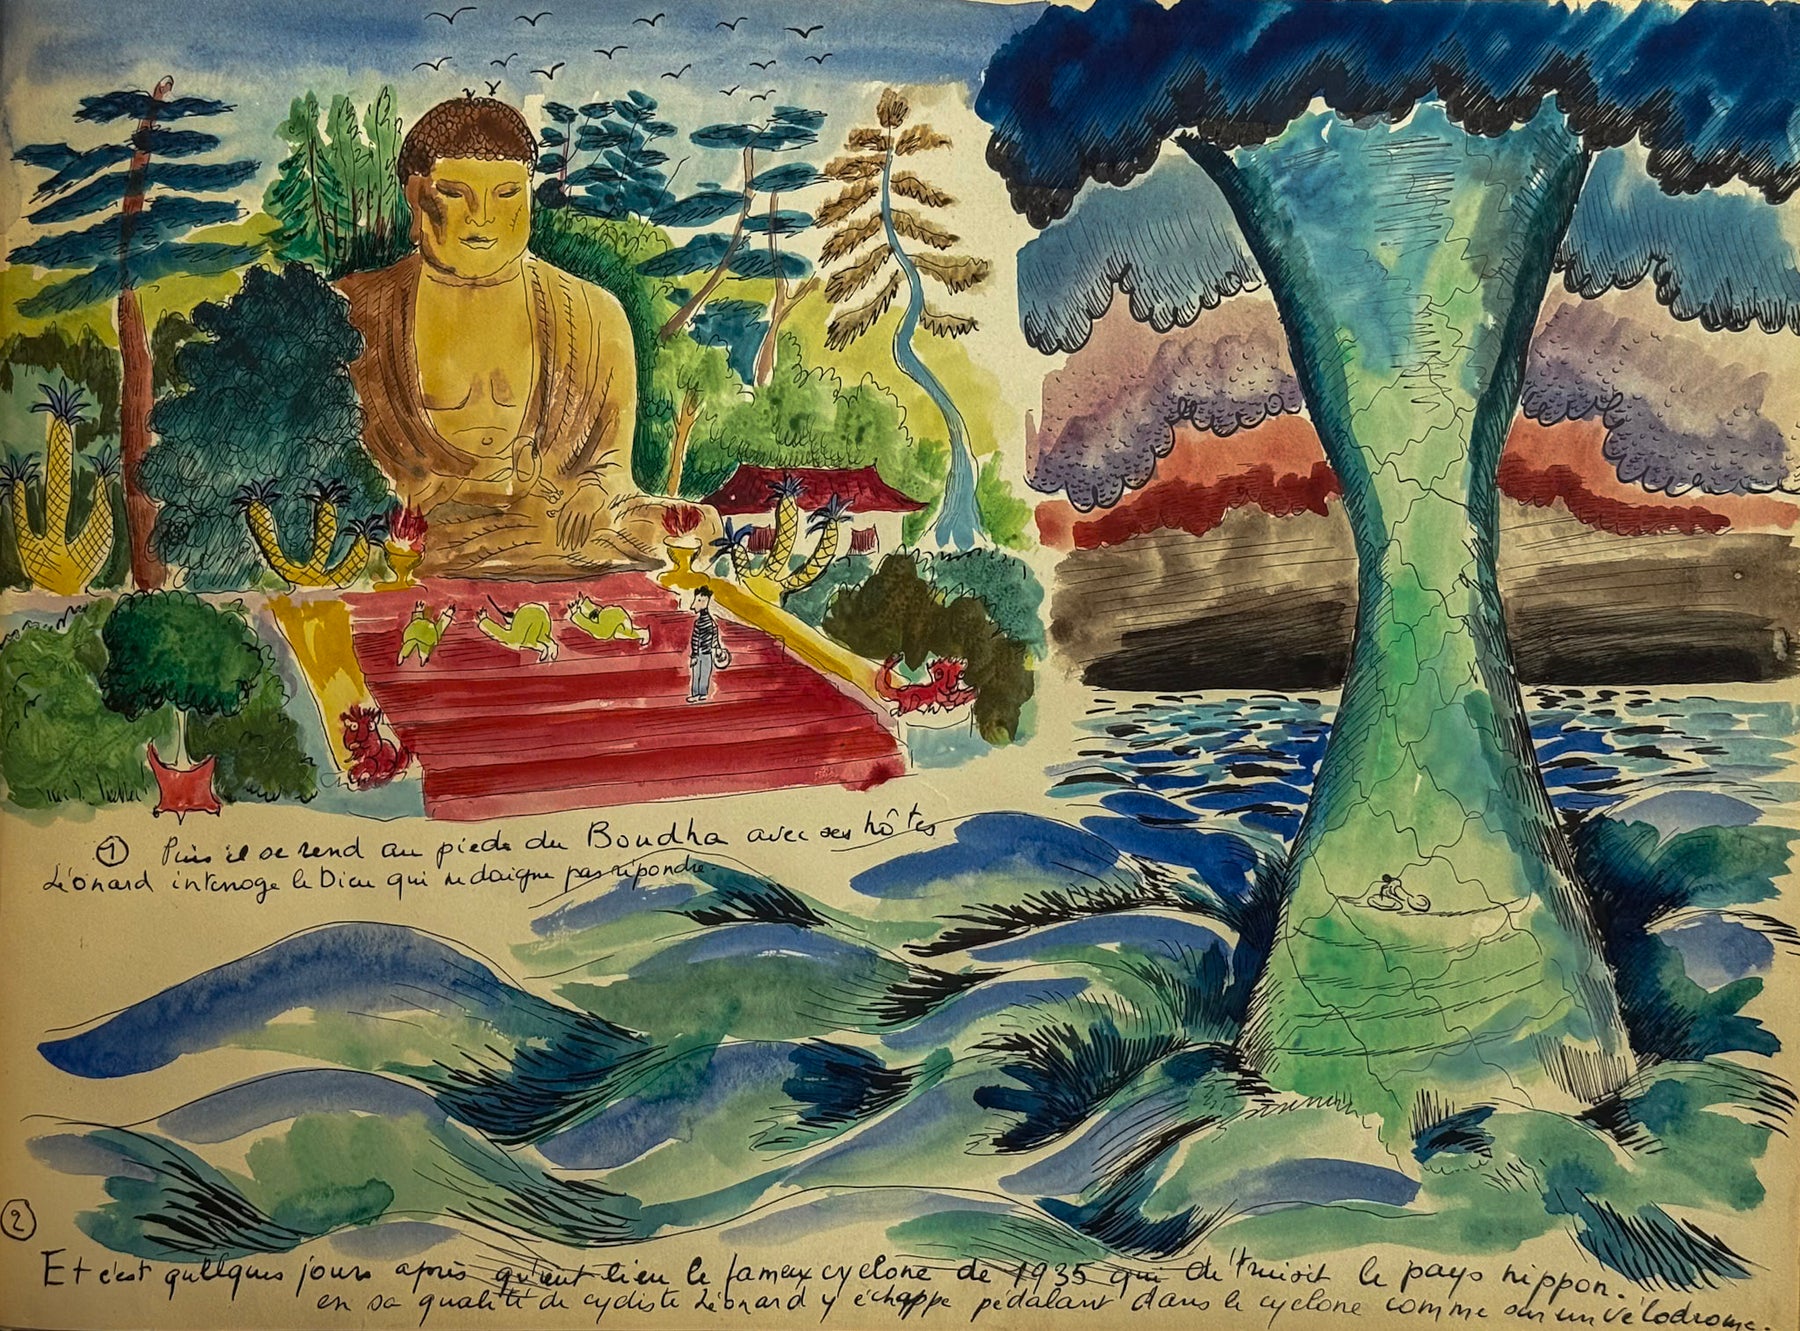 ① Puis il se rend au pieds du Boudha avec ses hôtes
Léonard interroge le Dieu qui ne daigne pas répondre.
②
Et c'est quelques jours après qu'eut lieu le fameux cyclone de 1935 qui détruisit le pays nippon.
en sa qualité de cycliste Léonard y échappe pédalant dans le cyclone comme sur un vélodrome.